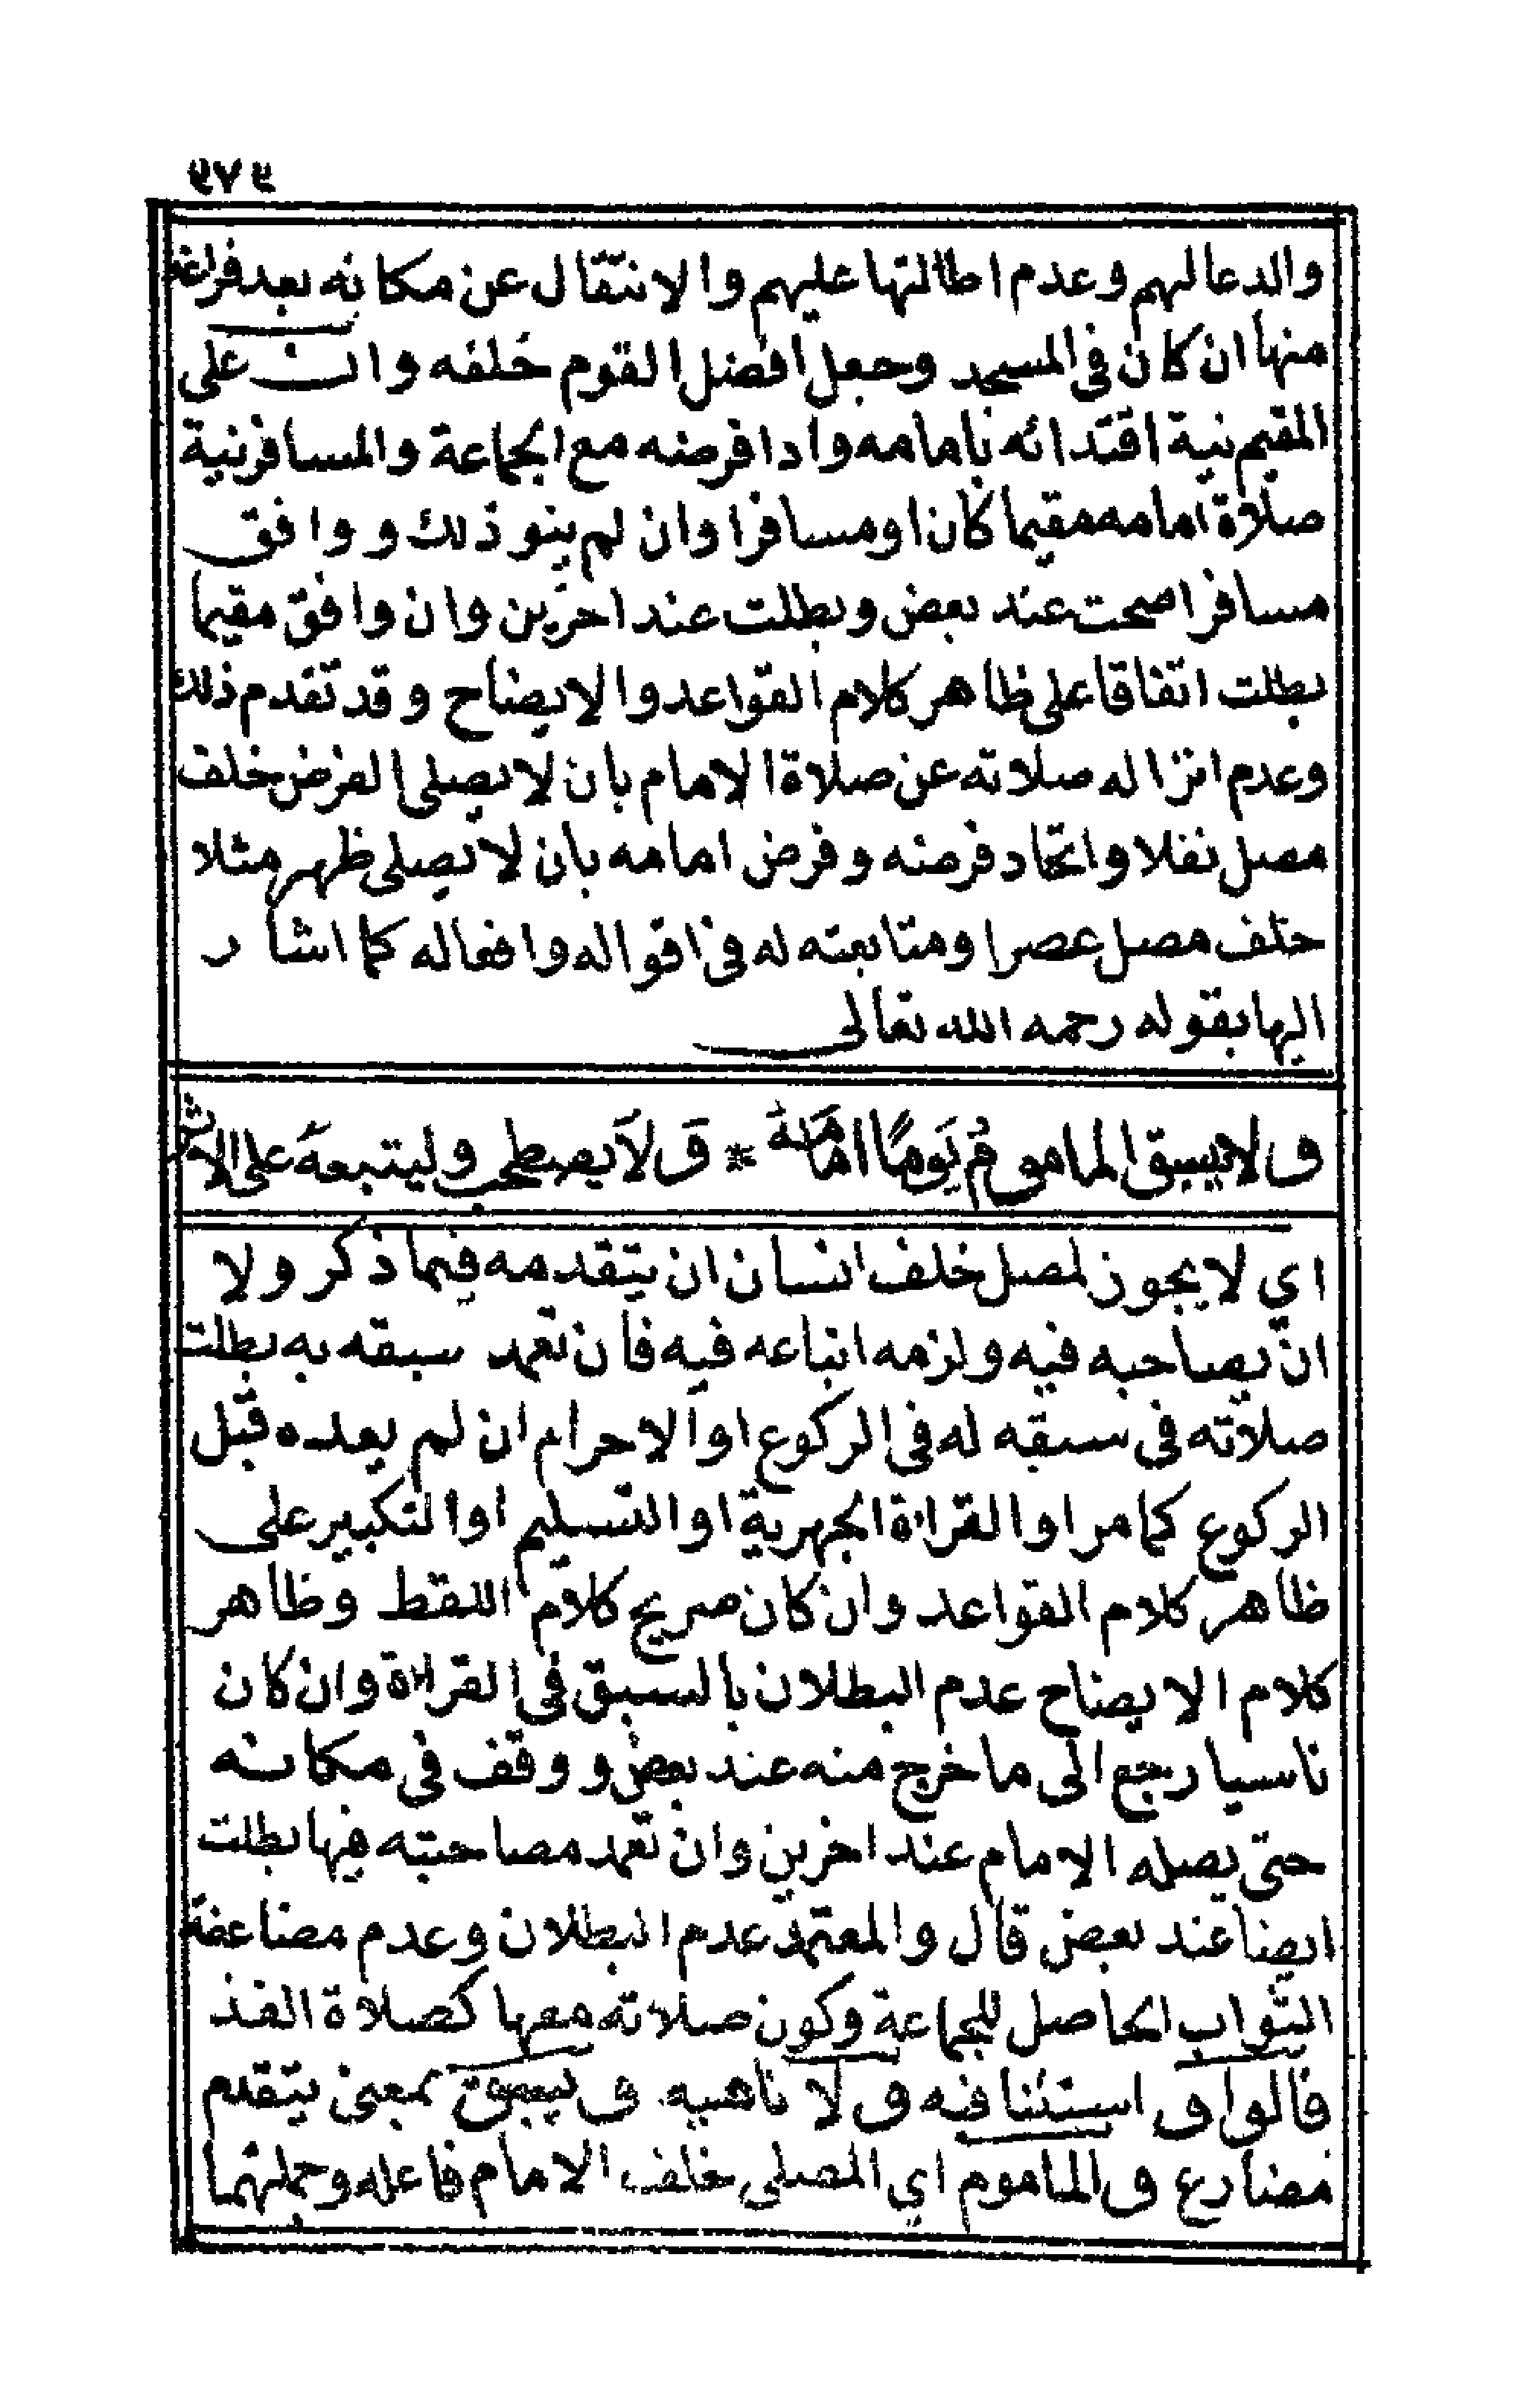 ٤٧٩
والدعا لهم وعدم اطالتها عليهم والانتقال عن مكانه بعد فراغه
منها ان كان في المسجد وجعل افضل القوم خلفه وان على
المقيم نية اقتدائه بامامه وادا فرضه مع الجماعة والمسافر نية
صلاة امامه مقيما كان او مسافرا وان لم ينو ذلك ووافق
مسافرا صحت عند بعض وبطلت عند اخرين وان وافق مقيما
بطلت اتفاقا على ظاهر كلام القواعد والايضاح وقد تقدم ذلك
وعدم انزاله صلاته عن صلاة الامام بان لا يصلى الفرض خلف
مصل نفلا واتحاد فرضه وفرض امامه بان لا يصلى ظهر مثلا
خلف مصل عصرا ومتابعته له في اقواله وافعاله كما اشار
اليها بقوله رحمه الله تعالى
ولا يسبق الماموم يوما امامه * ولا يصطحب وليتبعه على الاثر
اي لا يجوز لمصل خلف انسان ان يتقدمه فيما ذكر ولا
ان يصاحبه فيه ولزمه اتباعه فيه فان تعمد سبقه به بطلت
صلاته في سبقه له في الركوع او الاحرام ان لم يعده قبل
الركوع كما مر او القراءة الجهرية او التسليم او التكبير على
ظاهر كلام القواعد وان كان صريح كلام اللقط وظاهر
كلام الايضاح عدم البطلان بالسبق في القراءة وان كان
ناسيا رجع الى ما خرج منه عند بعض ووقف في مكانه
حتى يصله الامام عند اخرين وان تعمد مصاحبته فيها بطلت
ايضا عند بعض قال والمعتمد عدم البطلان وعدم مضاعفة
الثواب الحاصل للجماعة وكون صلاته معها كصلاة الفذ
فالواو استئنافيه ولا ناهيه ويسبق بمعنى يتقدم
مضارع والماموم اي المصلى خلف الامام فاعله وجملتهما